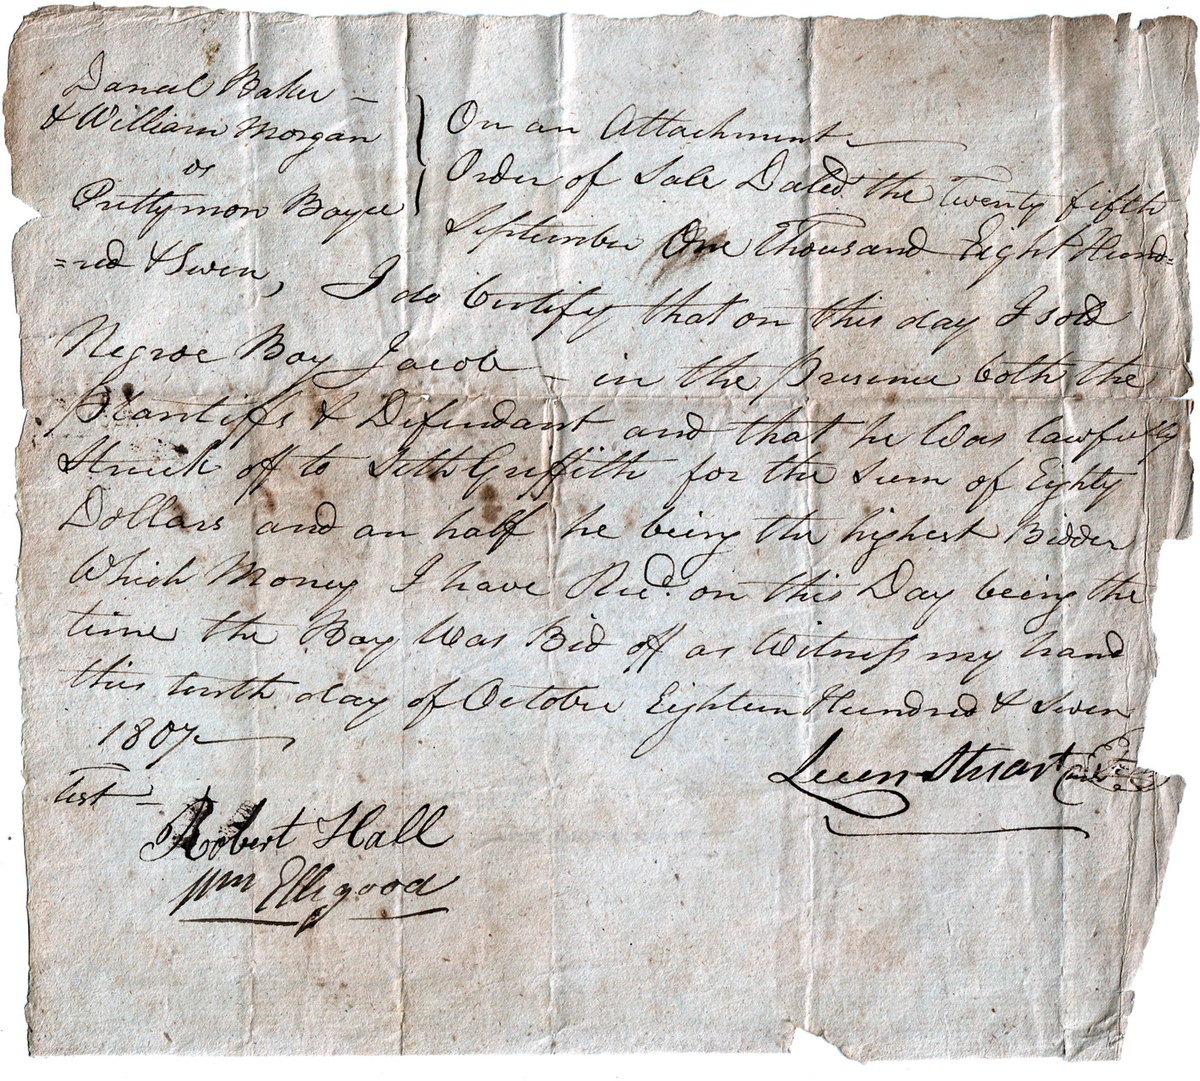 Daneel Baker —
& William Morgan
vs
Prettymon Boyce
On an Attachment
Order of Sale Dated the Twenty fifth
September One Thousand Eight Hund=
=red & Seven, I do Certify that on this day I sold
Negroe Boy Jacob — in the Presence both the
Plantiffs & Defendant and that he Was lawfully
Struck off to Seth Griffith for the Sum of Eighty
Dollars and an half he being the highest Bidder
Which Money I have Recd. on this Day being the
time the Boy Was Bid off as Witness my hand
this tenth day of October Eighteen Hundred & Seven
1807
Test — Stuart
Robert Hall
Wm Ellegood